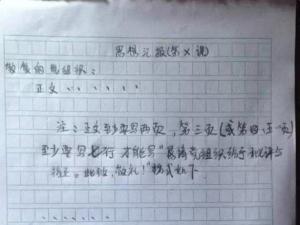 思想汇报(第X课)
敬爱的党组织：
正文、、、、、、
注：正文至少要写两页，第三页(或第四、五一页)
至少要写七行才能写“恳请党组织给予批评与
指正。此致，敬礼！”格式如下
、、、、、、